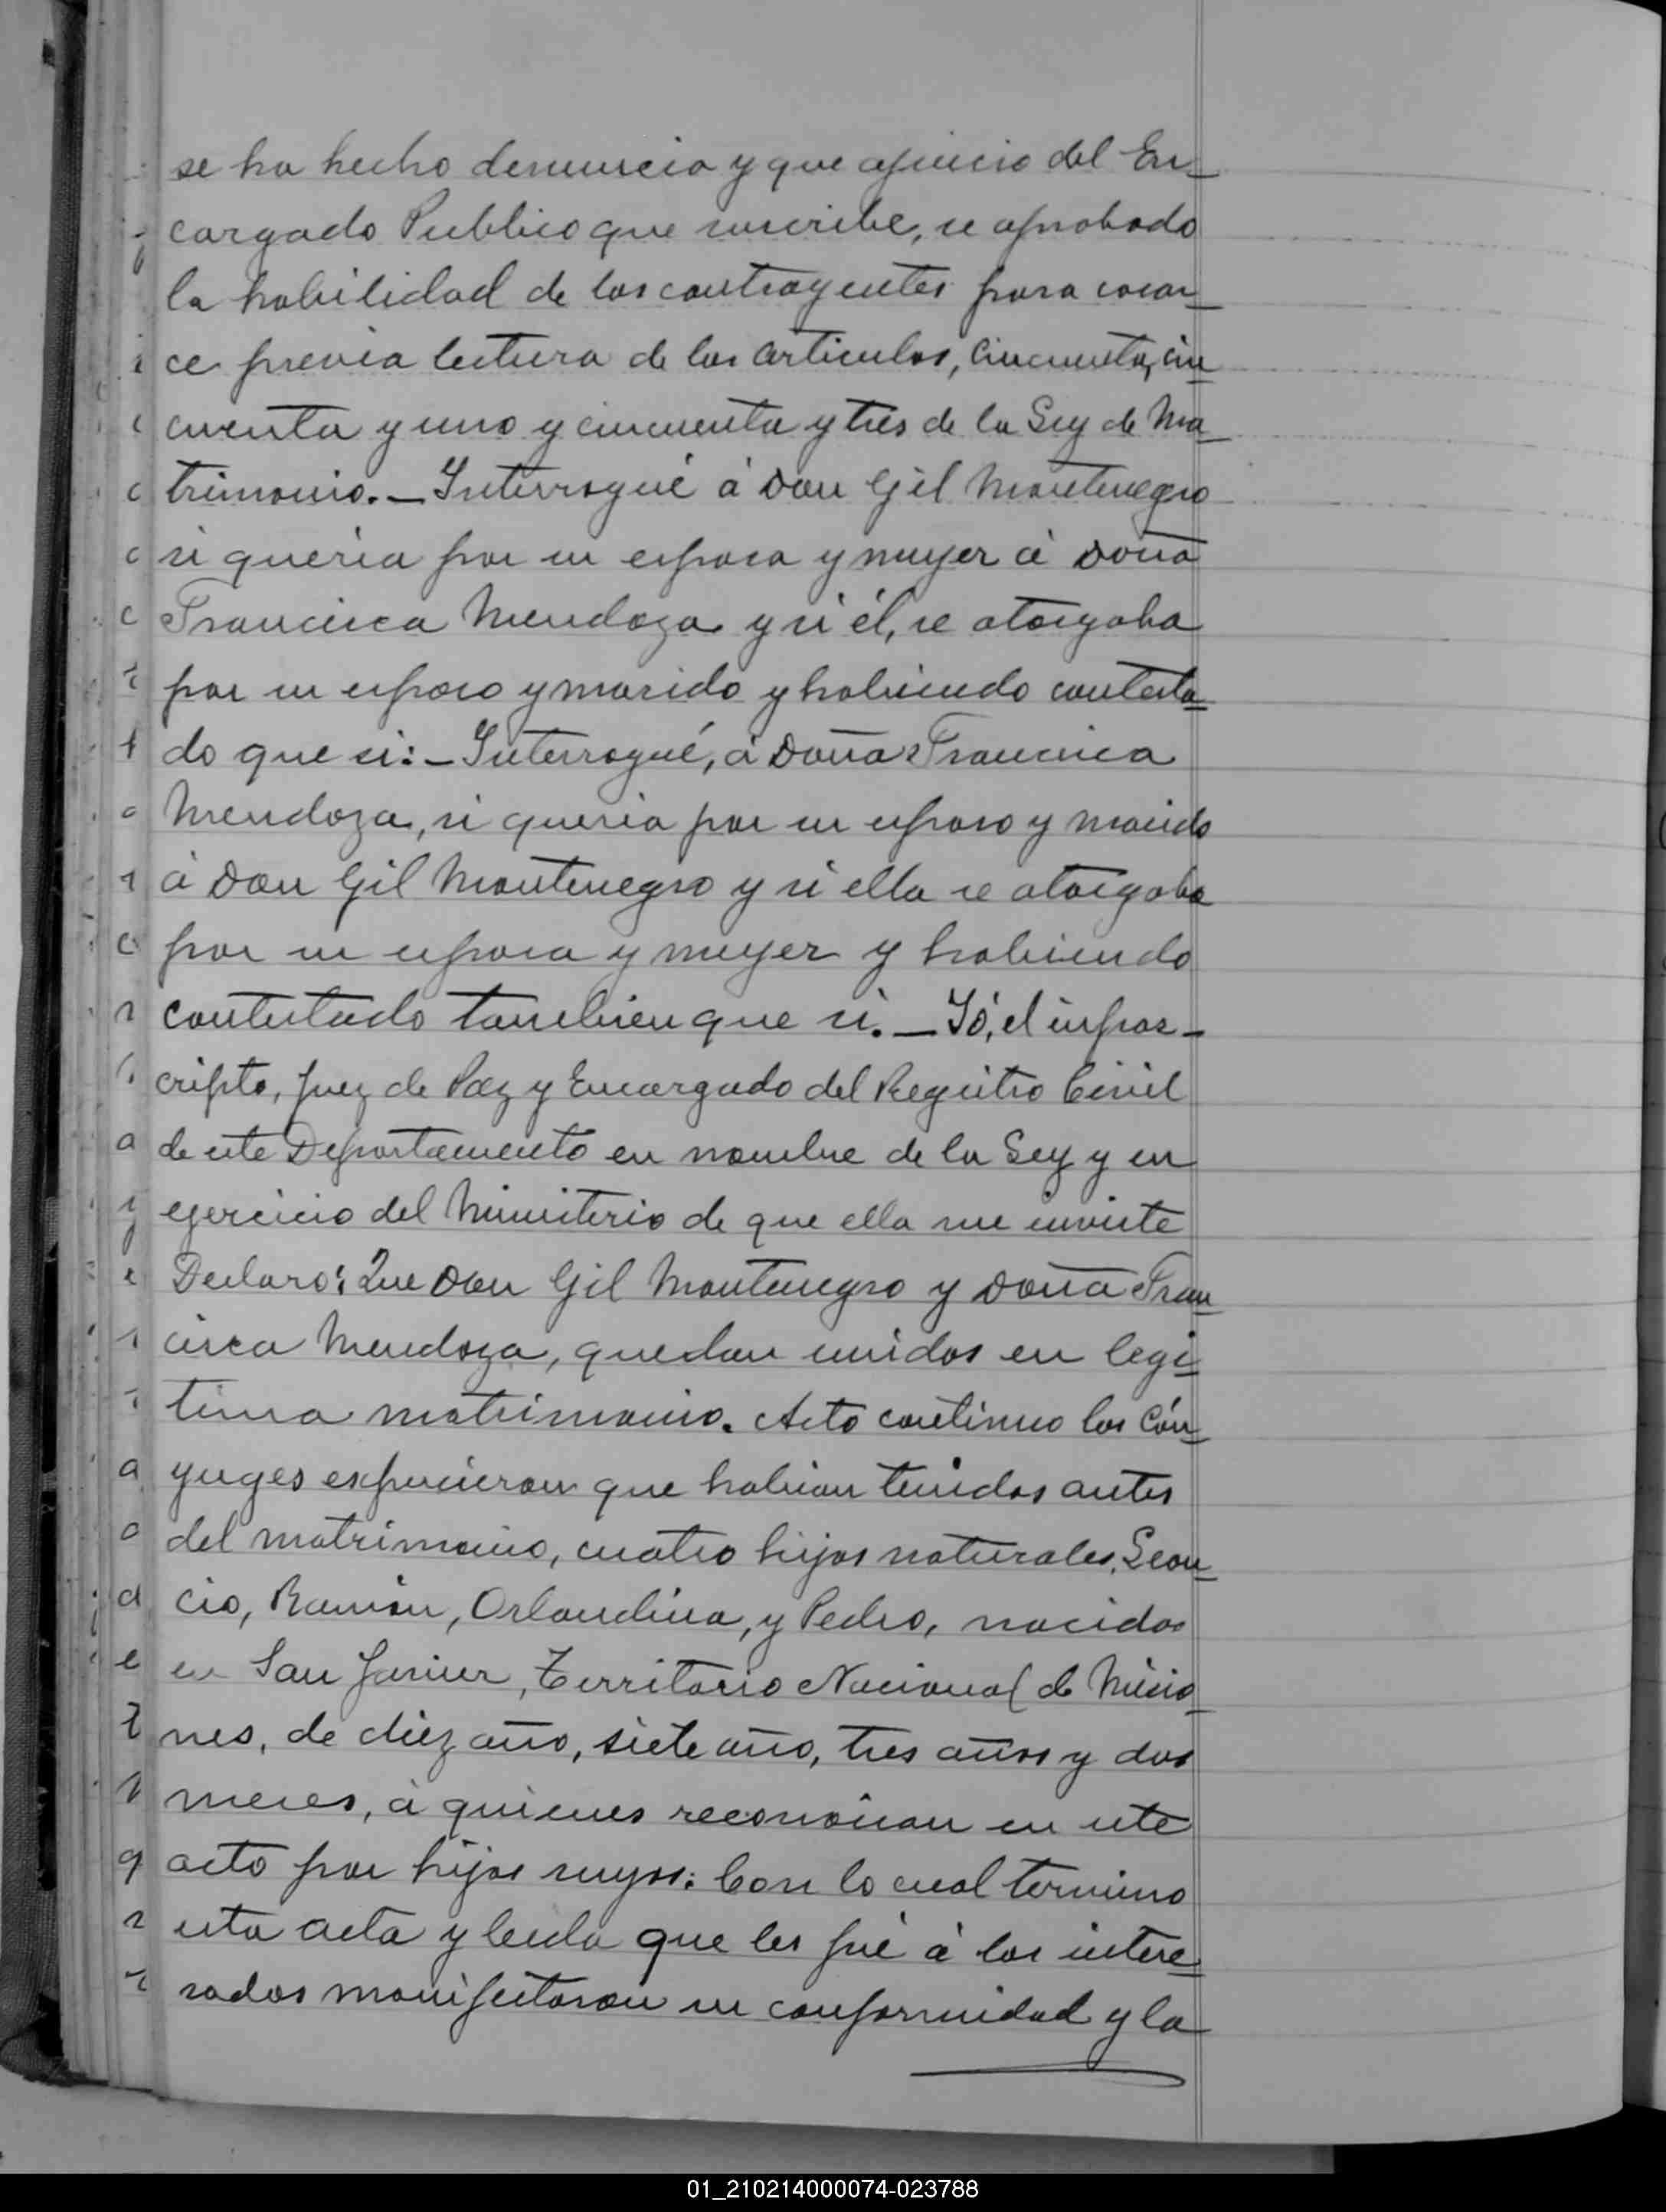 se ha hecho denuncia y que ajuicio del En-
cargado Publico que suscribe, se aprobado
la habilidad de los contrayentes para casar-
ce previa lectura de los articulos, cincuenta, cin
cuenta y uno y cincuenta y tres de la Ley de Ma-
trimonio. — Interrogué á Don Gil Montenegro
si queria por su esposa y muger á Doña
Francisca Mendoza y si él, se otorgaba
por su esposo y marido y habiendo contesta=
do que si: — Interrogué, á Doña Francisca
Mendoza, si queria por su esposo y marido
á Don Gil Montenegro y si ella se otorgaba
por su esposa y muger y habiendo
contestado tambien que si. — Yó, el infras-
cripto, Juez de Paz y Encargado del Registro Civil
de este Departamento en nombre de la Ley y en
ejercicio del Ministerio de que ella me inviste
Declaro: Que Don Gil Montenegro y Doña Fran=
cisca Mendoza, quedan unidos en legi=
tima matrimonio. Acto continuo los Cón=
yuges expucieron que habian tenidos antes
del matrimonio, cuatro hijos naturales, Leon=
cio, Ramón, Orlandina, y Pedro, nacidos
en San Javier, Territorio Nacional de Misio-
nes, de diez año, siete año, tres años y dos
meses, á quienes reconocian en este
acto por hijos suyos: Con lo cual termino
esta acta y leida que les fué á los intere=
sados manifestaron su conformidad y la
01_210214000074-023788